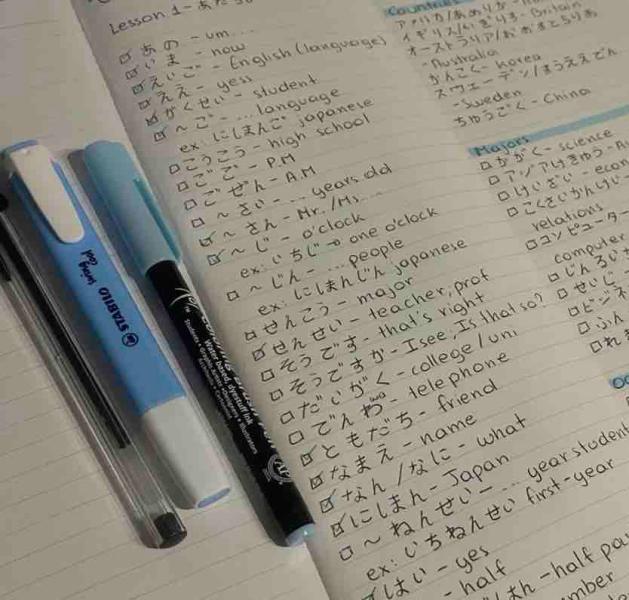 Lesson 1 - あたら
あの - um...
いま - now
えいご - English (language)
ええ - yes
がくせい - student
~ご - ... language
ex: にしまんご japanese
こうこう - high school
ごご - P.M
ごぜん - A.M
~さい - ... years old
~さん - Mr./Ms...
~じ - o'clock
ex: いちじ → one o'clock
~じん - ... people
ex: にしまんじん japanese
せんこう - major
せんせい - teacher, prof
そうです - that's right
そうですか - I see, Is that so?
だいがく - college/uni
でんわ - telephone
wa
ともだち - friend
なまえ - name
なん/なに - what
にしまん - Japan
~ねんせい - ... year student
ex: いちねんせい first-year
はい - yes
- half
はん - half pa
Countries
アメリカ/あめりか
イギリス/いぎりす - Britain
オーストラリア/おおすとらりあ
- Australia
かんこく - korea
スウェーデン/すうええでん
- Sweden
ちゅうごく - China
Majors
かがく - science
アジアけんきゅう - A
けいざい - econ
こくさいかんけい -
relations
コンピューター
computer
じんるい
せいじ -
ビジネ
ぶん
れき
STABILO
swing cool
Water based, dyestuff ink